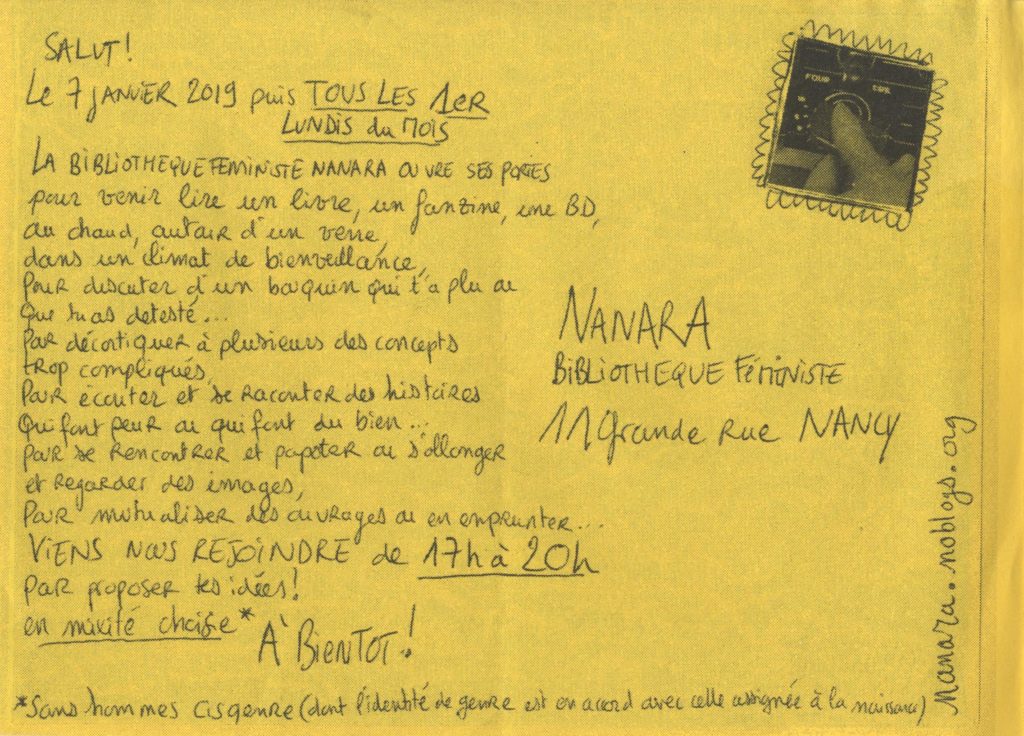 SALUT!
Le 7 JANVIER 2019 puis TOUS LES 1eR
LUNDIS du MOIS
LA BIBLIOTHEQUE FEMINISTE NANARA OUVRE SES PORTES
pour venir lire un livre, un fanzine, une BD,
au chaud, autour d'un verre,
dans un climat de bienveillance,
Pour discuter d'un bouquin qui t'a plu ou
Que tu as detesté...
Pour décortiquer à plusieurs des concepts
trop compliqués,
Pour écouter et se raconter des histoires
Qui font peur ou qui font du bien...
Pour se rencontrer et papoter ou s'allonger
et regarder des images,
Pour mutualiser des ouvrages ou en emprunter...
VIENS NOUS REJOINDRE de 17h à 20h
Pour proposer tes idées!
en mixité choisie*
À BIENTOT!
*Sans hommes cisgenre (dont l'identité de genre est en accord avec celle assignée à la naissance)
FOUR
NANARA
BIBLIOTHEQUE FéMINISTE
11 Grande Rue NANCY
Nanara.noblogs.org